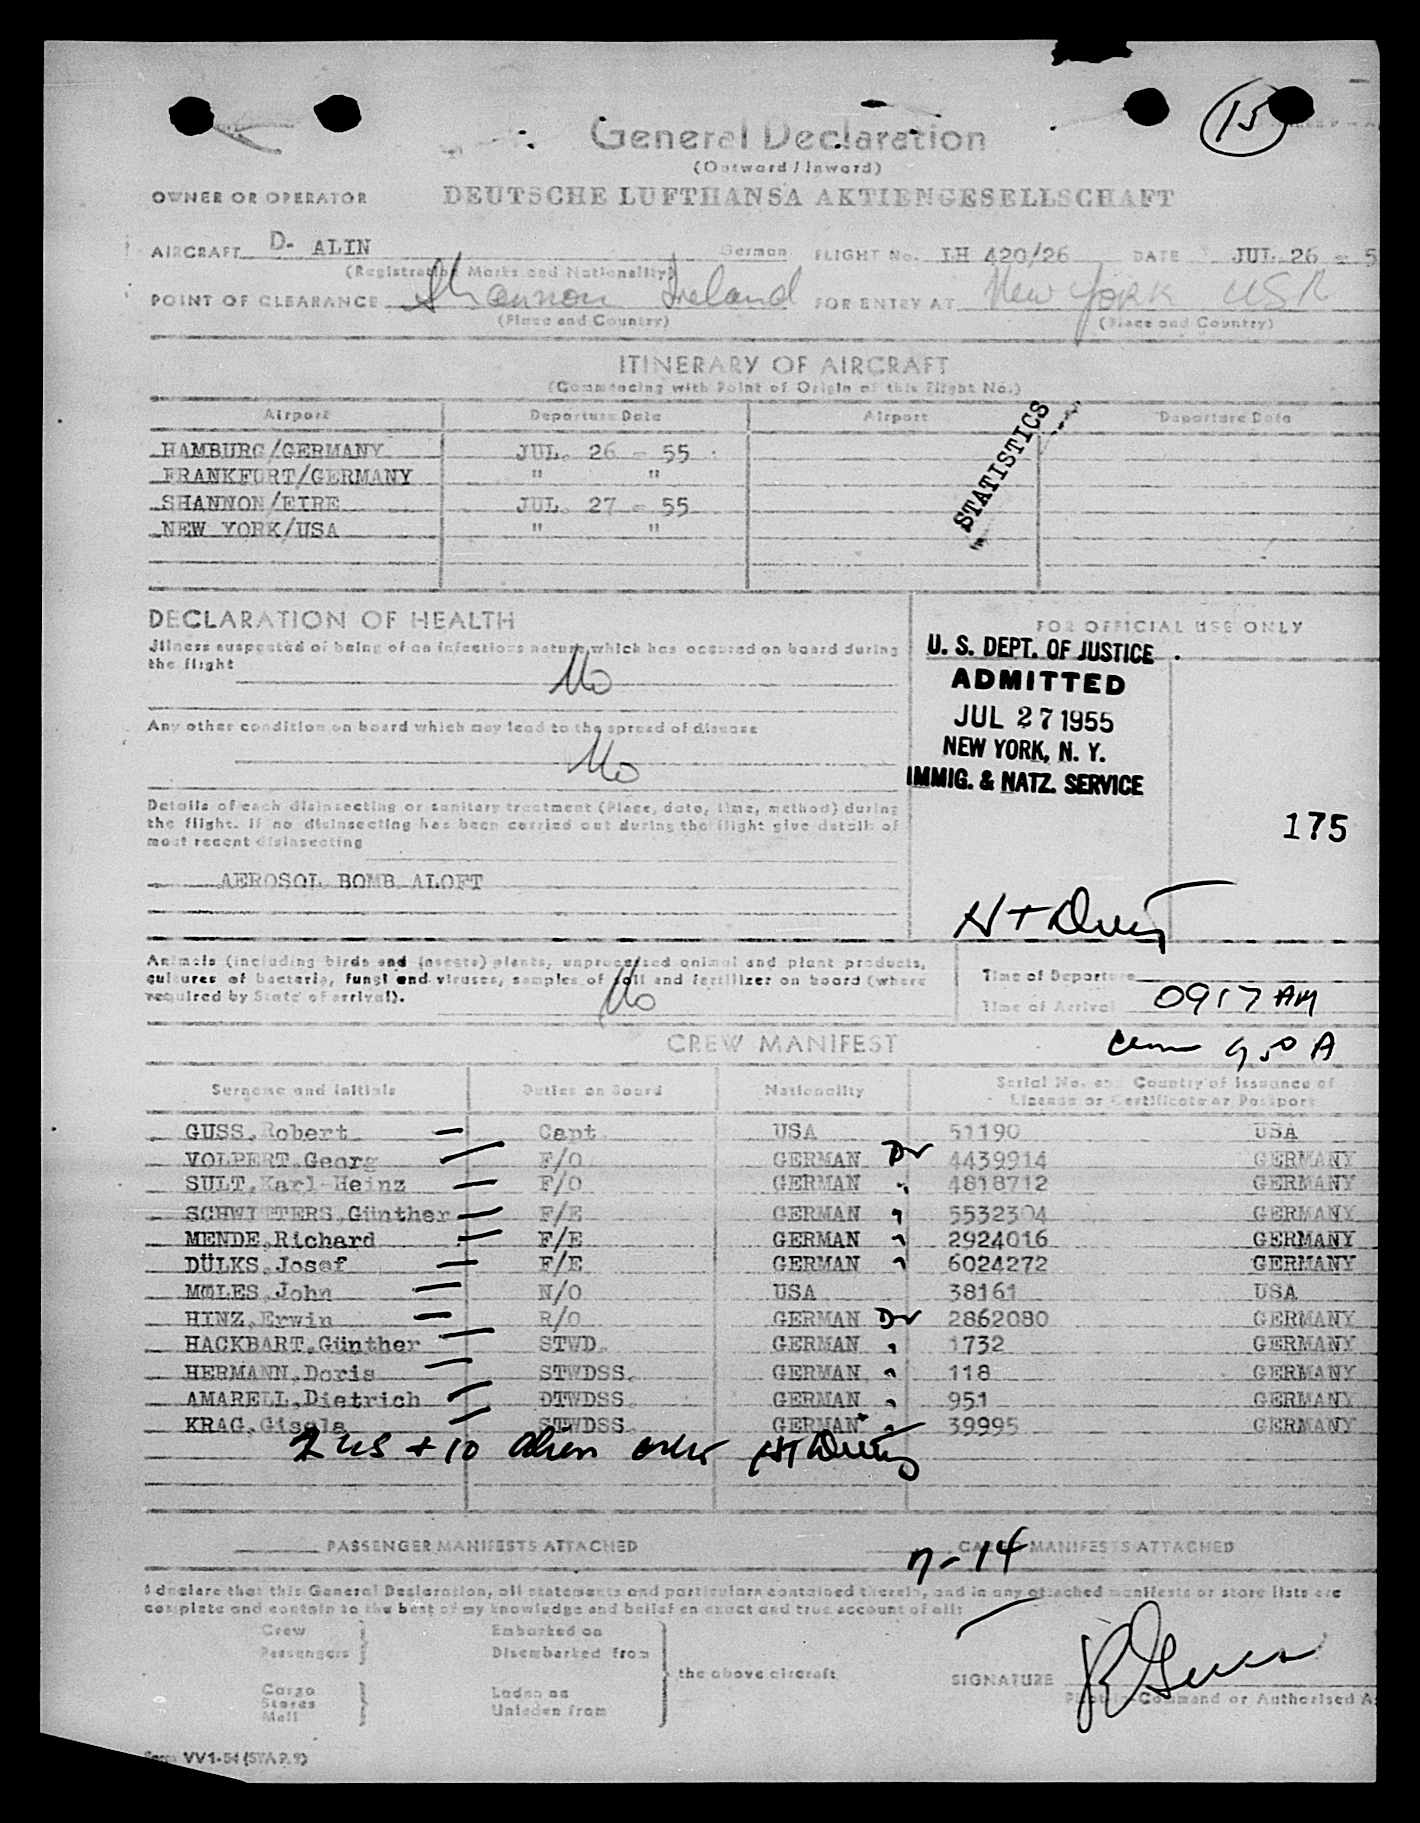 15
General Declaration
(Outward / Inward)
OWNER OR OPERATOR DEUTSCHE LUFTHANSA AKTIENGESELLSCHAFT
AIRCRAFT D- ALIN German FLIGHT No. LH 420/26 DATE JUL 26 - 5
(Registration Marks and Nationality)
POINT OF CLEARANCE Shannon Ireland FOR ENTRY AT New York USA
(Place and Country) (Place and Country)
ITINERARY OF AIRCRAFT
(Commencing with Point of Origin of this Flight No.)
Airport Departure Date Airport Departure Date
HAMBURG/GERMANY JUL. 26 - 55
FRANKFURT/GERMANY " "
SHANNON/EIRE JUL. 27 - 55
NEW YORK/USA " "
STATISTICS
DECLARATION OF HEALTH
FOR OFFICIAL USE ONLY
Illness suspected of being of an infectious nature which has occured on board during
the flight No
U. S. DEPT. OF JUSTICE
ADMITTED
JUL 27 1955
NEW YORK, N. Y.
IMMIG. & NATZ. SERVICE
Any other condition on board which may lead to the spread of disease
No
Details of each disinsecting or sanitary treatment (Place, date, time, method) during
the flight. If no disinsecting has been carried out during the flight give details of
most recent disinsecting
175
AEROSOL BOMB ALOFT
Animals (including birds and insects) plants, unprocessed animal and plant products,
cultures of bacteria, fungi and viruses, samples of soil and fertilizer on board (where
required by State of arrival). No
Time of Departure
Time of Arrival 0917 AM
950 A
CREW MANIFEST
Surname and initials Duties on Board Nationality Serial No. and Country of Issuance of
License or Certificate or Passport
GUSS, Robert Capt. USA 51190 USA
VOLPERT, Georg F/O GERMAN 4439914 GERMANY
SULT, Karl-Heinz F/O GERMAN 4818712 GERMANY
SCHWITTERS, Günther F/E GERMAN 5532304 GERMANY
MENDE, Richard F/E GERMAN 2924016 GERMANY
DÜLKS, Josef F/E GERMAN 6024272 GERMANY
MOLES, John N/O USA 38161 USA
HINZ, Erwin R/O GERMAN 2862080 GERMANY
HACKBART, Günther STWD. GERMAN 1732 GERMANY
HERMANN, Doris STWDSS. GERMAN 118 GERMANY
AMARELL, Dietrich STWDSS. GERMAN 951 GERMANY
KRAG, Gisela STWDSS. GERMAN 39995 GERMANY
2 US + 10 alien
PASSENGER MANIFESTS ATTACHED CARGO MANIFESTS ATTACHED
n-14
I declare that this General Declaration, all statements and particulars contained therein, and in any attached manifests or store lists are
complete and contain to the best of my knowledge and belief an exact and true account of all:
Crew Embarked on
Passengers Disembarked from
the above aircraft
Cargo Laden on
Stores Unladen from
Mail
SIGNATURE R Guss
Pilot in Command or Authorised A
Form VV1-54 (STA P. 9)